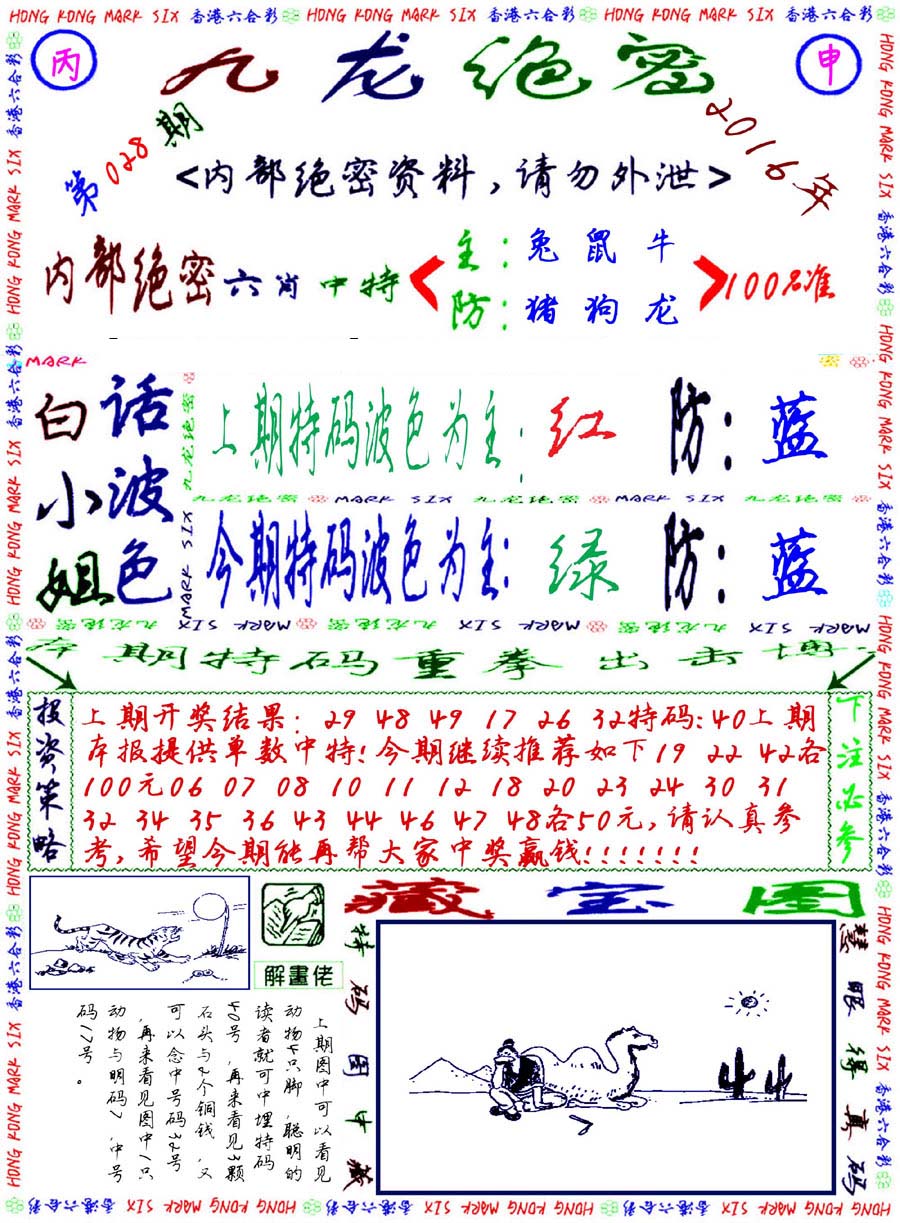 HONG KONG MARK SIX 香港六合彩 HONG KONG MARK SIX 香港六合彩 HONG KONG MARK SIX 香港六合彩
丙
九龙绝密
申
第028期
2016年
<内部绝密资料，请勿外泄>
内部绝密六肖中特
主：兔鼠牛
防：猪狗龙
100%准
MARK
密
白话小波姐色
上期特码波色为主：红 防：蓝
九龙绝密 MARK SIX 九龙绝密 MARK SIX 九龙绝密
今期特码波色为主：绿 防：蓝
九龙绝密 MARK SIX
MARK SIX 九龙绝密 MARK SIX 九龙绝密 MARK SIX 九龙绝密
本期特码重拳出击博
投资策略
上期开奖结果：29 48 49 17 26 32特码：40上期
本报提供单数中特！今期继续推荐如下19 22 42各
100元06 07 08 10 11 12 18 20 23 24 30 31
32 34 35 36 43 44 46 47 48各50元，请认真参
考，希望今期能再帮大家中奖赢钱！！！！！！！
下注必参
藏宝图
解畫佬
上期图中可以看见
动物4只脚，聪明的
读者就可中埋特码
40号，再来看见3颗
石头与2个铜钱，又
可以念中号码32号
，再来看见图中1只
动物与明码7，中号
码17号。
特码图中藏
慧眼得真码
HONG KONG MARK SIX 香港六合彩 HONG KONG MARK SIX 香港六合彩 HONG KONG MARK SIX 香港六合彩